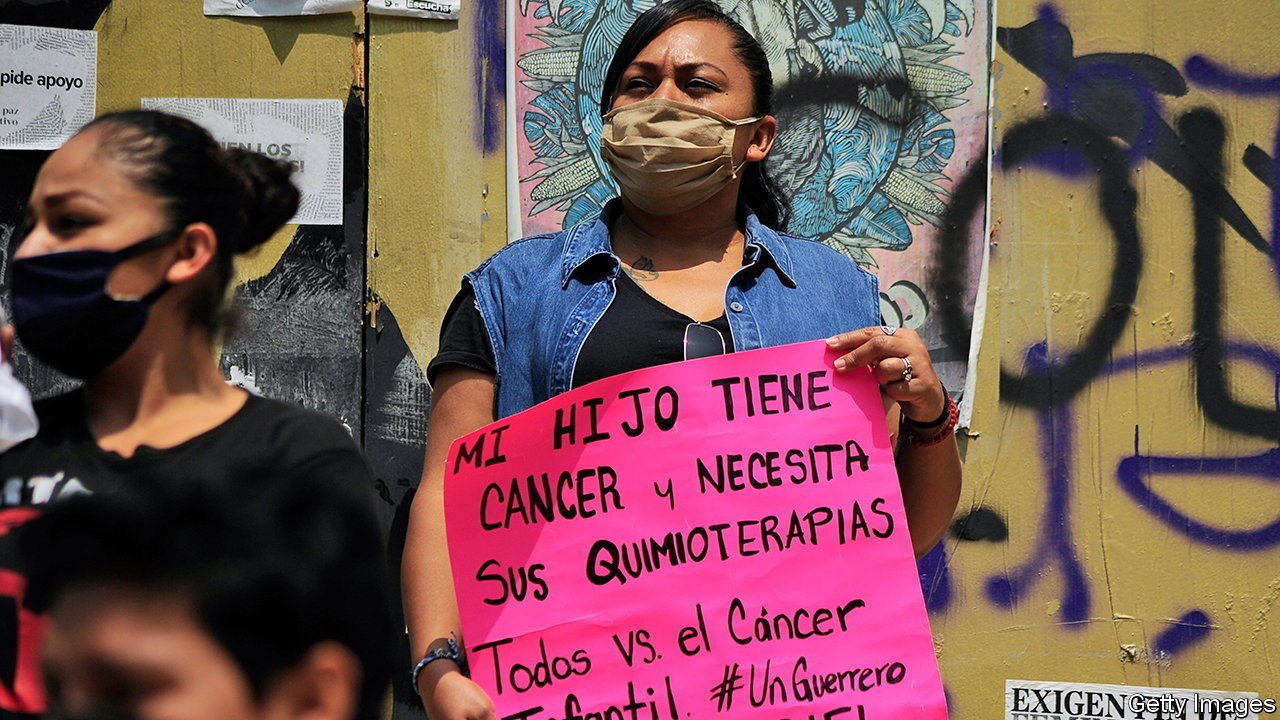 Escucha
pide apoyo
paz
MI HIJO TIENE
CANCER y NECESITA
SUS QUIMIOTERAPIAS
Todos vs. el Cáncer
Infantil. #UnGuerrero
EXIGEN
Getty Images